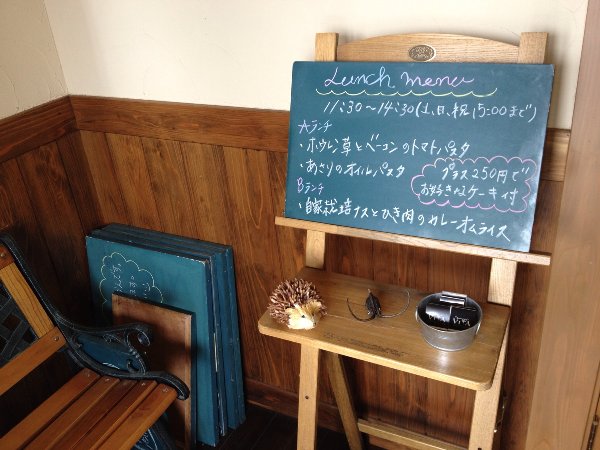 Lunch menu
11:30〜14:30(土、日、祝15:00まで)
Aランチ
・ホウレン草とベーコンのトマトパスタ
・あさりのオイルパスタ
プラス250円で
お好きなケーキ付
Bランチ
・自家栽培ナスとひき肉のカレーオムライス